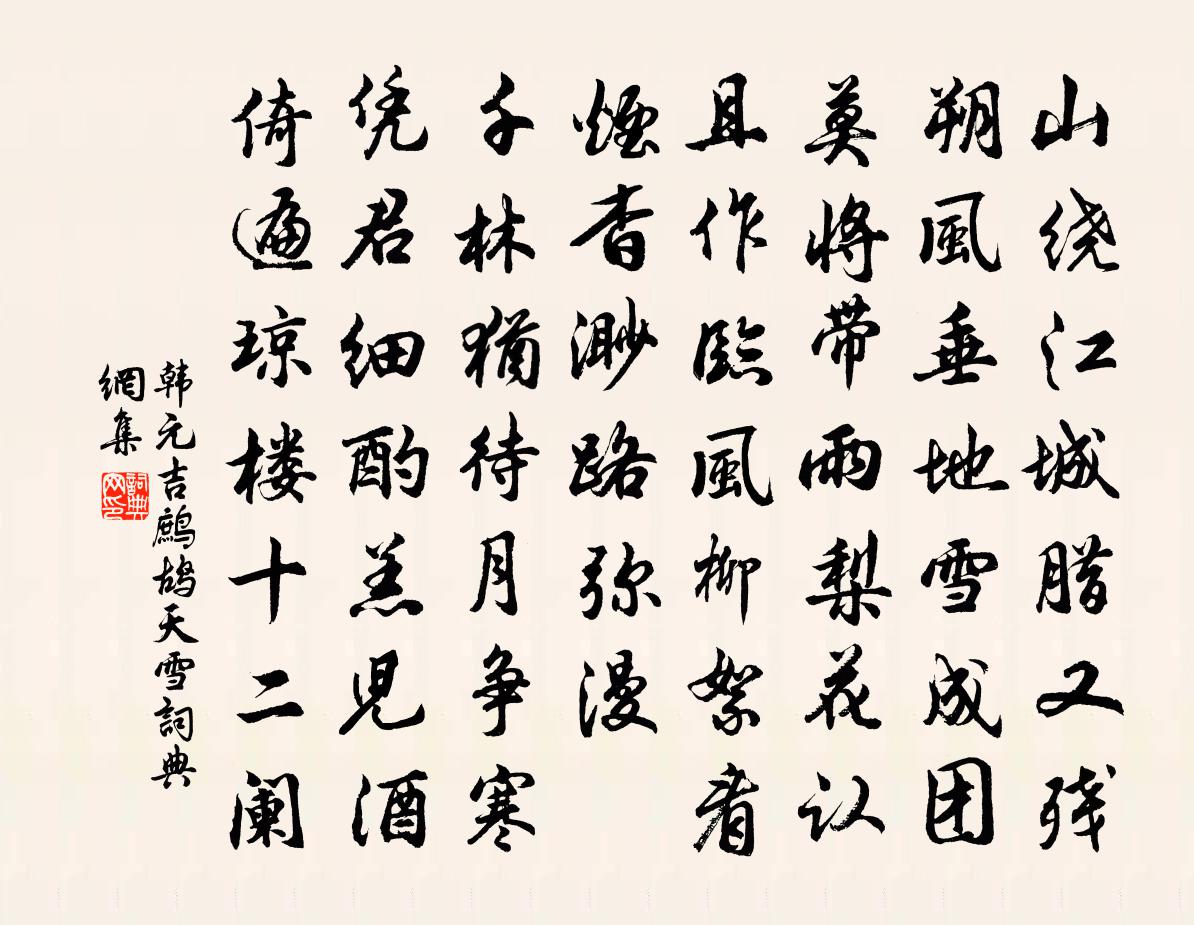 山绕江城腊又残
朔風垂地雪成团
莫将带雨梨花认
且作臨風柳絮看
煙杳渺路弥漫
千林犹待月争寒
凭君细酌羔児酒
倚遍琼楼十二阑
韩元吉鷓鸪天雪詞典
網集
詞典
网印